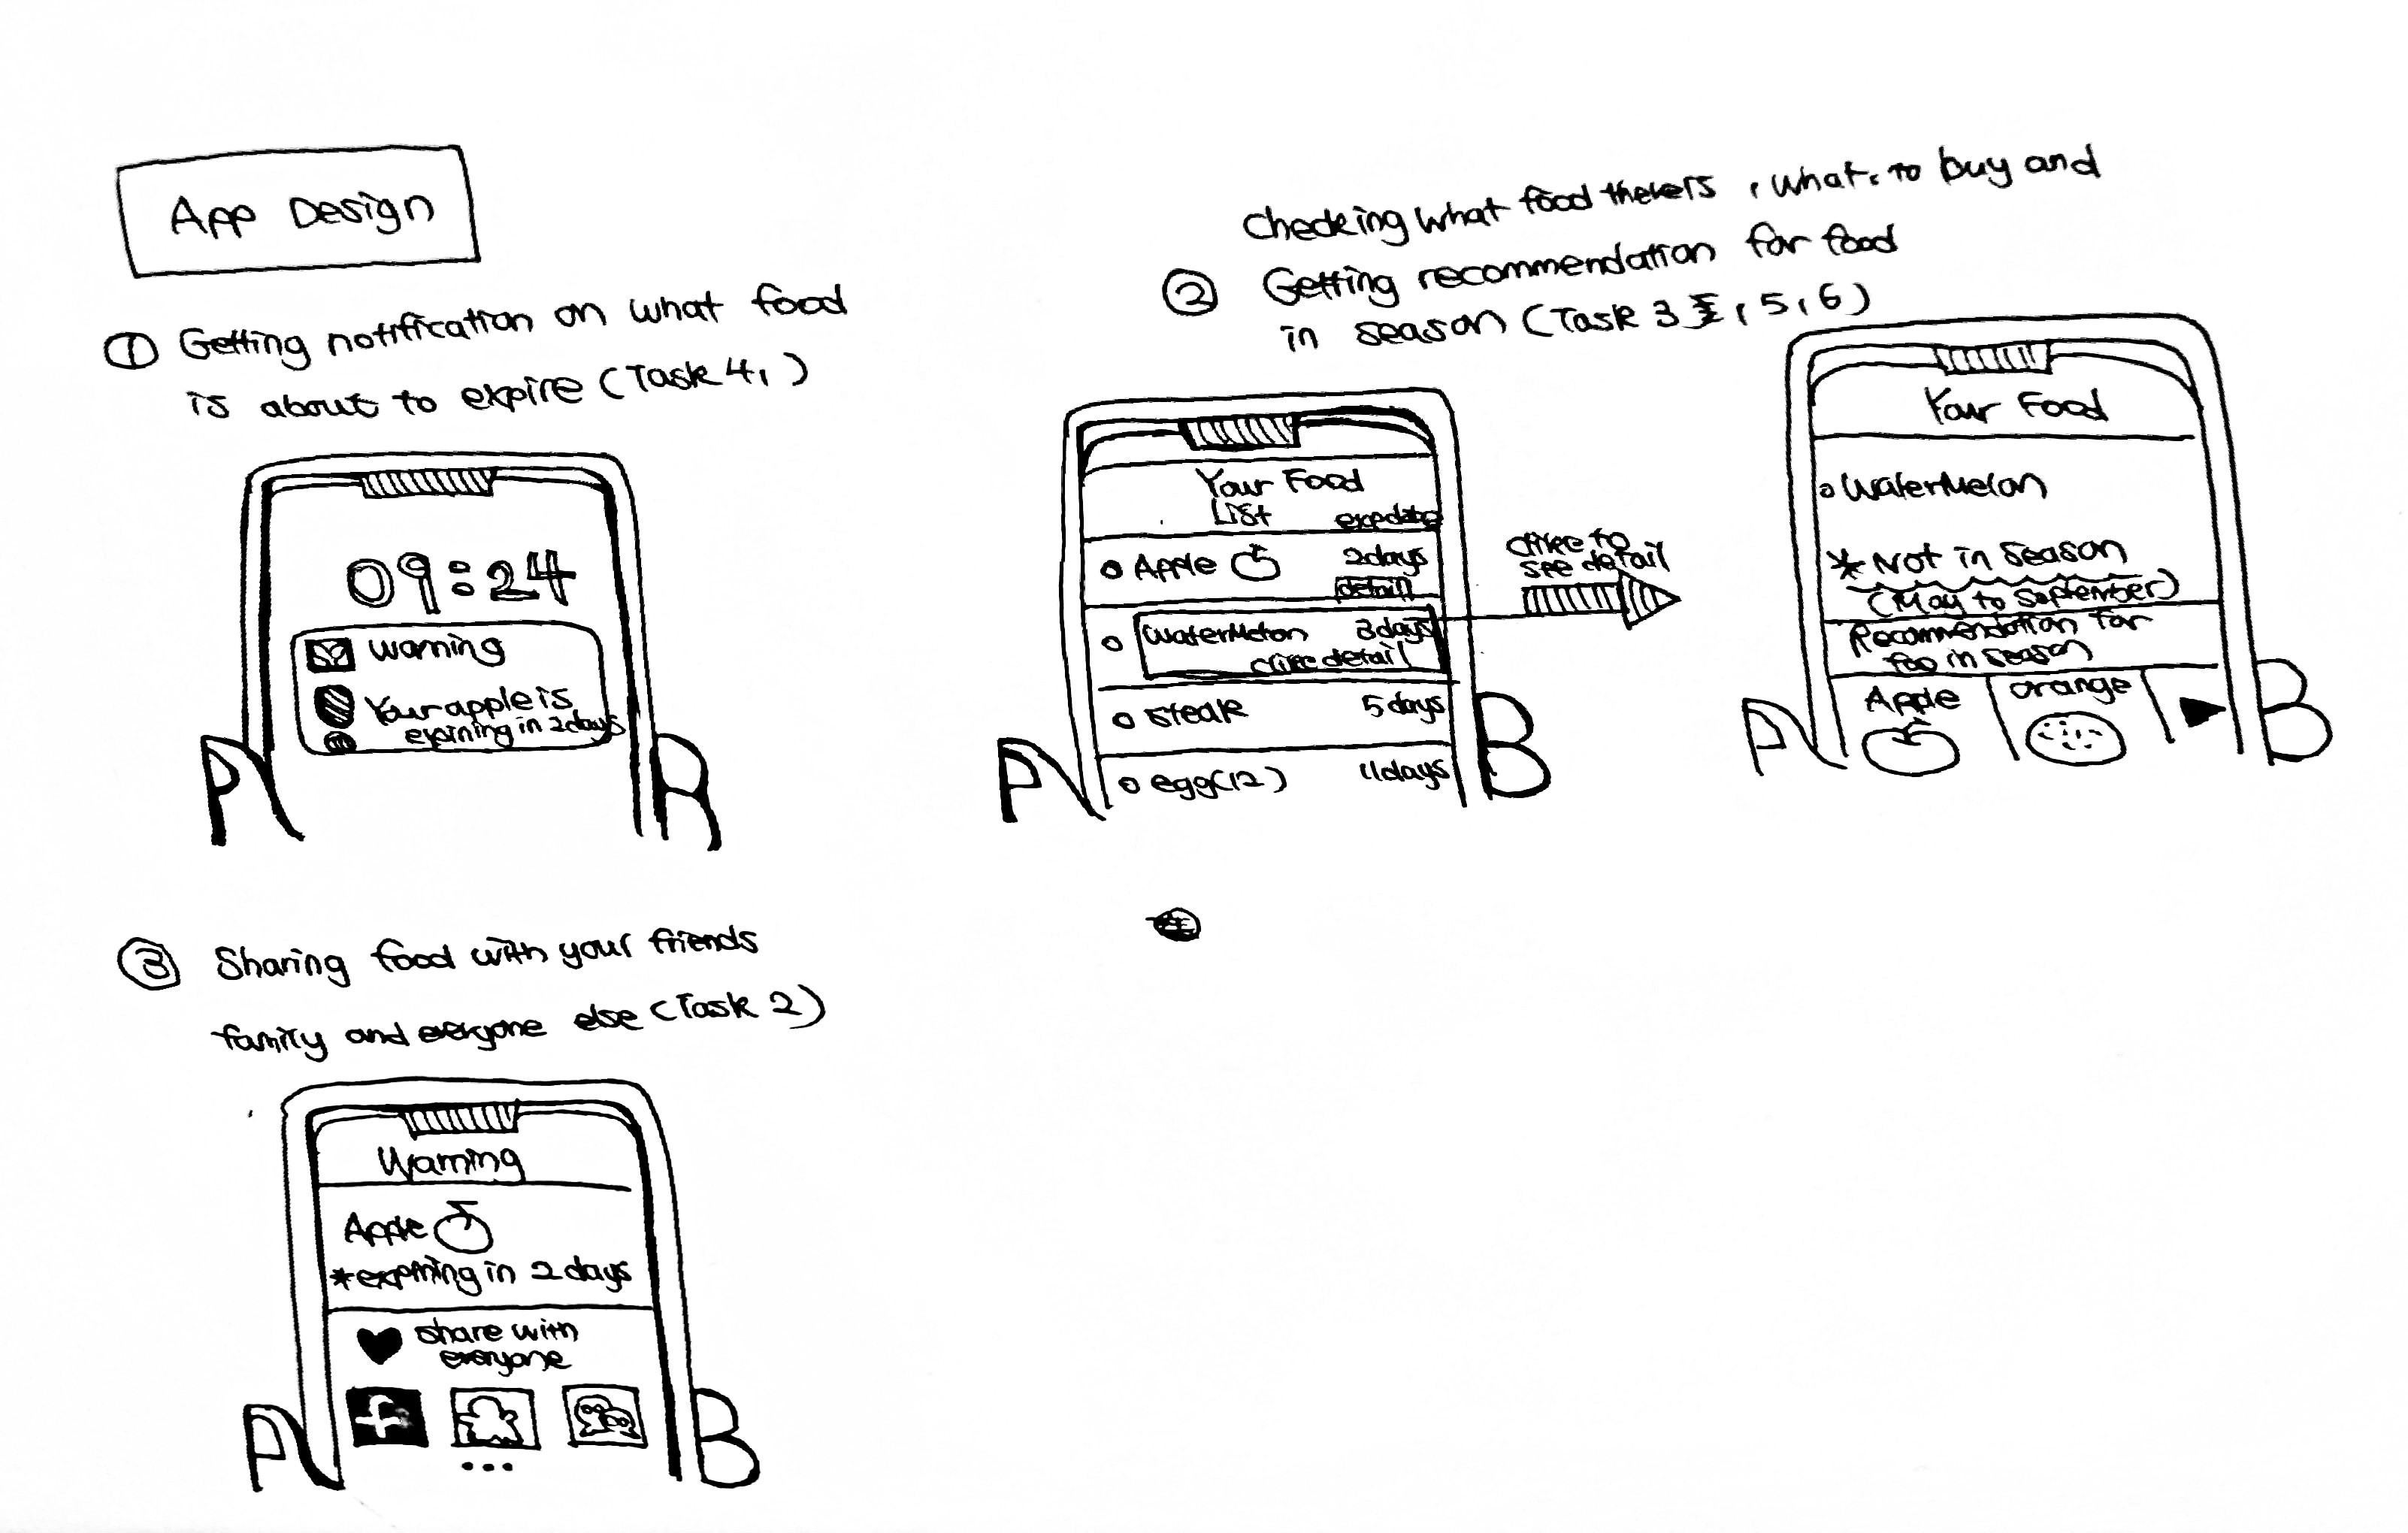 App Design
① Getting notification on what food
is about to expire (Task 4, )
09:24
warning
Your apple is
expining in 2days
checking what food thereis , what to buy and
② Getting recommendation for food
in season (Task 3 , 5, 6)
Your Food
List expdate
Apple 2days
detail
WaterMelon 3days
clike detail
steak 5 days
egg(12) 11days
clike to
see detail
Your Food
WaterMelon
* Not in season
(May to September)
Recommendation for
foo in season
Apple orange
③ Sharing food with your friends
family and everyone else (Task 2)
Warning
Apple
*expining in 2 days
share with
everyone
f
...